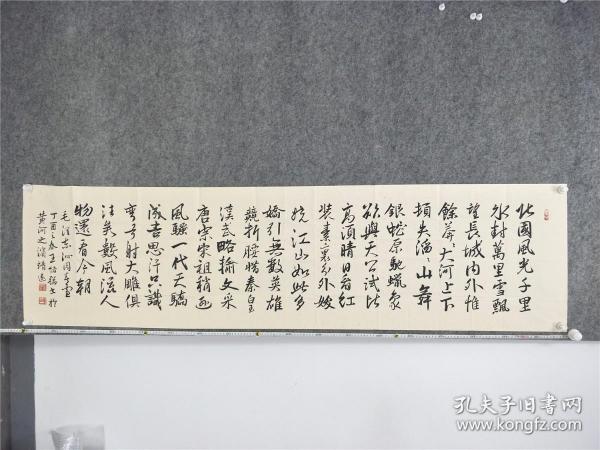 北國風光千里
冰封萬里雪飄
望長城内外惟
餘莽々大河上下
頓失滔々山舞
銀蛇原馳蠟象
欲與天公試比
高須晴日看紅
裝素裹分外妖
嬈江山如此多
嬌引無數英雄
競折腰惜秦皇
漢武略輸文采
唐宗宋祖稍遜
風騷一代天驕
成吉思汗只識
彎弓射大雕俱
往矣數風流人
物還看今朝
毛澤東沁園春雪
丁酉之春王書於
黄河之濱靖遠
孔夫子旧书网
www.kongfz.com